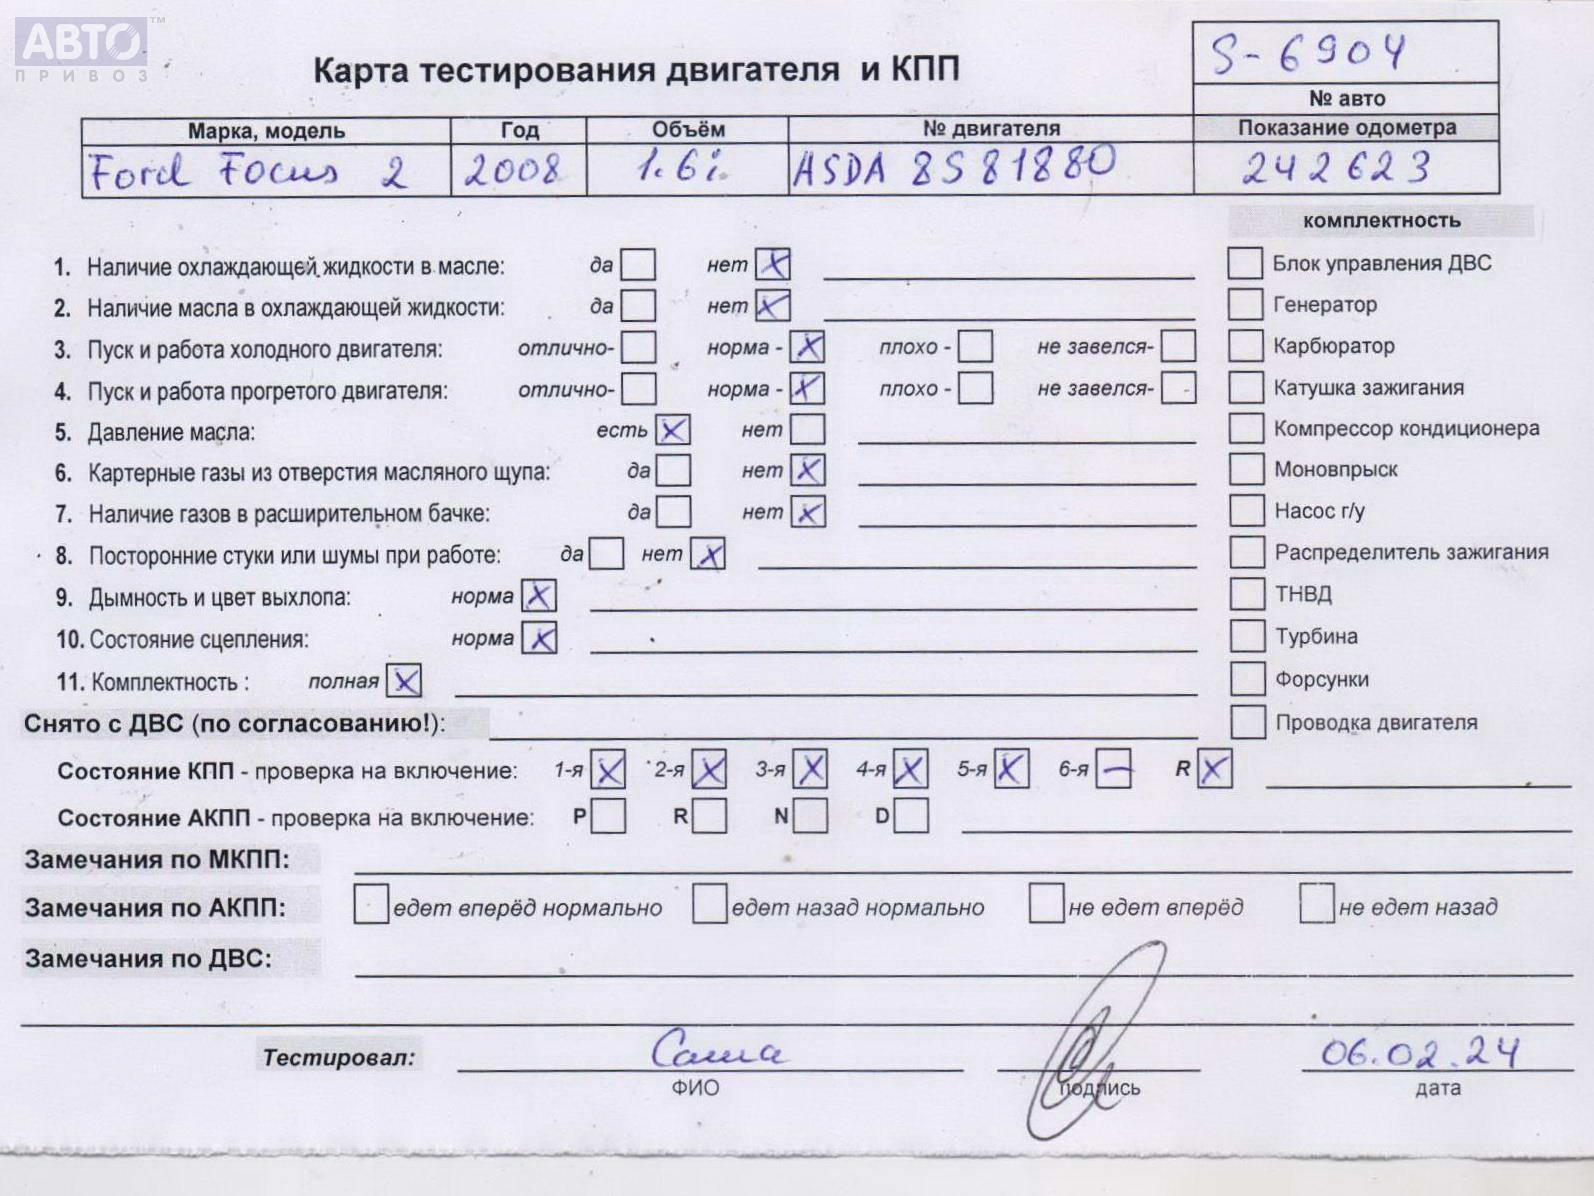 АВТО™
ПРИВОЗ
Карта тестирования двигателя и КПП
S-6904
№ авто
Марка, модель Год Объём № двигателя Показание одометра
Ford Focus 2 2008 1.6i ASDA 8S81880 242623
комплектность
1. Наличие охлаждающей жидкости в масле: да нет X
Блок управления ДВС
2. Наличие масла в охлаждающей жидкости: да нет X
Генератор
3. Пуск и работа холодного двигателя: отлично- норма - X плохо - не завелся-
Карбюратор
4. Пуск и работа прогретого двигателя: отлично- норма - X плохо - не завелся-
Катушка зажигания
5. Давление масла: есть X нет
Компрессор кондиционера
6. Картерные газы из отверстия масляного щупа: да нет X
Моновпрыск
7. Наличие газов в расширительном бачке: да нет X
Насос г/у
8. Посторонние стуки или шумы при работе: да нет X
Распределитель зажигания
9. Дымность и цвет выхлопа: норма X
ТНВД
10. Состояние сцепления: норма X
Турбина
11. Комплектность : полная X
Форсунки
Снято с ДВС (по согласованию!):
Проводка двигателя
Состояние КПП - проверка на включение: 1-я X 2-я X 3-я X 4-я X 5-я X 6-я — R X
Состояние АКПП - проверка на включение: P R N D
Замечания по МКПП:
Замечания по АКПП: едет вперёд нормально едет назад нормально не едет вперёд не едет назад
Замечания по ДВС:
Тестировал: Саша 06.02.24
ФИО подпись дата